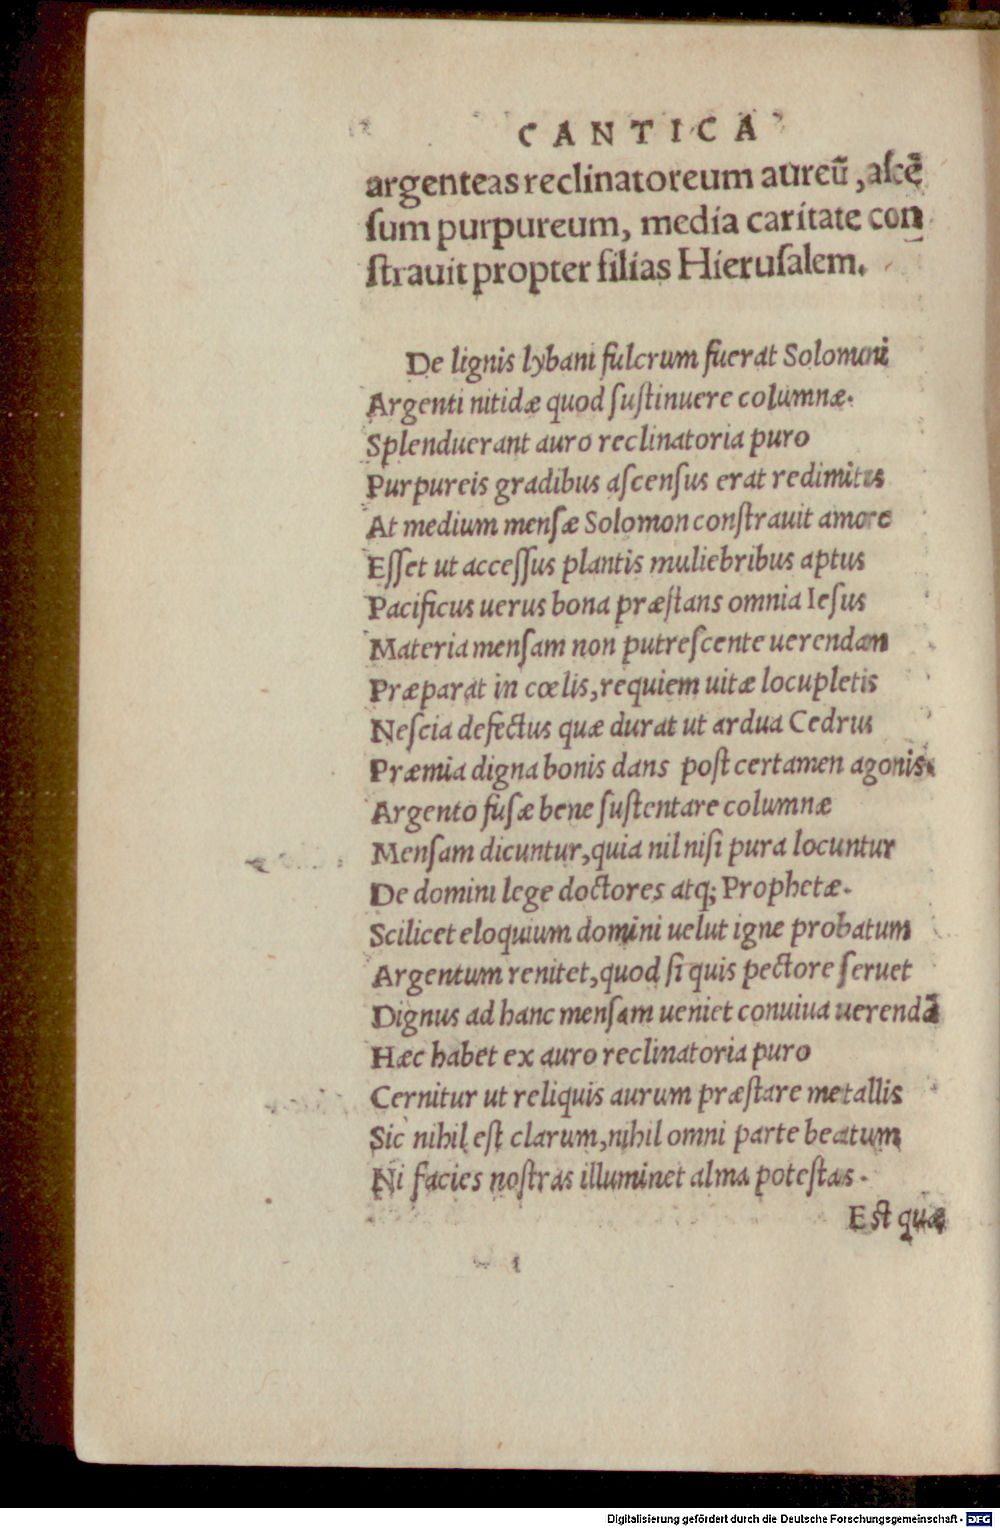 CANTICA
argenteas reclinatoreum aureũ, aſcẽ
ſum purpureum, media caritate con
ſtrauit propter filias Hieruſalem.
De lignis lybani fulcrum fuerat Solomoni
Argenti nitidæ quod ſuſtinuere columnæ.
Splenduerant auro reclinatoria puro
Purpureis gradibus aſcenſus erat redimitus
At medium menſæ Solomon conſtrauit amore
Eſſet ut acceſſus plantis muliebribus aptus
Pacificus uerus bona præſtans omnia Ieſus
Materia menſam non putreſcente uerendam
Præparat in cœlis, requiem uitæ locupletis
Neſcia defectus quæ durat ut ardua Cedrus
Præmia digna bonis dans poſt certamen agonis.
Argento fuſæ bene ſuſtentare columnæ
Menſam dicuntur, quia nil niſi pura locuntur
De domini lege doctores atq; Prophetæ.
Scilicet eloquium domini uelut igne probatum
Argentum renitet, quod ſi quis pectore ſeruet
Dignus ad hanc menſam ueniet conuiua uerendã
Hæc habet ex auro reclinatoria puro
Cernitur ut reliquis aurum præſtare metallis
Sic nihil eſt clarum, nihil omni parte beatum
Ni facies noſtras illuminet alma poteſtas.
Eſt quæ
Digitalisierung gefördert durch die Deutsche Forschungsgemeinschaft - DFG